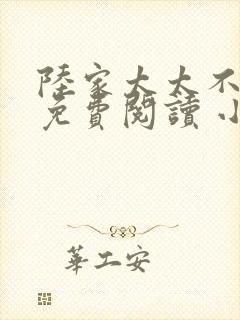 陸家太太不
免費閱讀 小
華工安